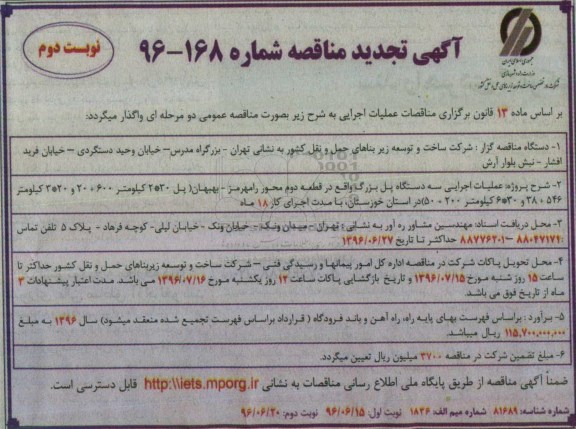 آگهی تجدید مناقصه شماره ۱۶۸-۹۶
نوبت دوم
جمهوری اسلامی ایران
وزارت راه و شهرسازی
بر اساس ماده ۱۳ قانون برگزاری مناقصات عملیات اجرایی به شرح زیر بصورت مناقصه عمومی دو مرحله ای واگذار میگردد:
۱- دستگاه مناقصه گزار : شرکت ساخت و توسعه زیر بناهای حمل و نقل کشور به نشانی تهران - بزرگراه مدرس- خیابان وحید دستگردی - خیابان فرید
افشار - نبش بلوار آرش
۲- شرح پروژه: عملیات اجرایی سه دستگاه پل بزرگ واقع در قطعه دوم محور رامهرمز - بهبهان( پل ۳۰*۲ کیلومتر ۶۰۰ + ۲۰ و ۲۰*۳ کیلومتر
۵۴۶ + ۳۸ و ۳۰*۶ کیلومتر ۲۰۰ + ۵۰)در استان خوزستان، با مدت اجرای کار ۱۸ ماه
۳- محل دریافت اسناد: مهندسین مشاور ره آور به نشانی : تهران - میدان ونک - خیابان ونک - خیابان لیلی- کوچه فرهاد - پلاک ۵ تلفن تماس
۸۸۰۴۷۱۷۱ -۸۸۷۷۶۳۰۱ حداکثر تا تاریخ ۱۳۹۶/۰۶/۲۷
۴- محل تحویل پاکات شرکت در مناقصه اداره کل امور پیمانها و رسیدگی فنی - شرکت ساخت و توسعه زیربناهای حمل و نقل کشور حداکثر تا
ساعت ۱۵ روز شنبه مورخ ۱۳۹۶/۰۷/۱۵ و تاریخ بازگشایی پاکات ساعت ۱۲ روز یکشنبه مورخ ۱۳۹۶/۰۷/۱۶ می باشد. مدت اعتبار پیشنهادات ۳
ماه از تاریخ فوق می باشد.
۵- برآورد : براساس فهرست بهای پایه راه، راه آهن و باند فرودگاه ( قرارداد براساس فهرست تجمیع شده منعقد میشود) سال ۱۳۹۶ به مبلغ
۱۱۵,۷۰۰,۰۰۰,۰۰۰ ریال میباشد.
۶- مبلغ تضمین شرکت در مناقصه ۳۷۰۰ میلیون ریال تعیین میگردد.
ضمناً آگهی مناقصه از طریق پایگاه ملی اطلاع رسانی مناقصات به نشانی http:\\iets.mporg.ir قابل دسترسی است.
شماره شناسه: ۸۱۶۸۹ شماره میم الف: ۱۸۳۶ نوبت اول: ۹۶/۰۶/۱۵ نوبت دوم: ۹۶/۰۶/۲۰